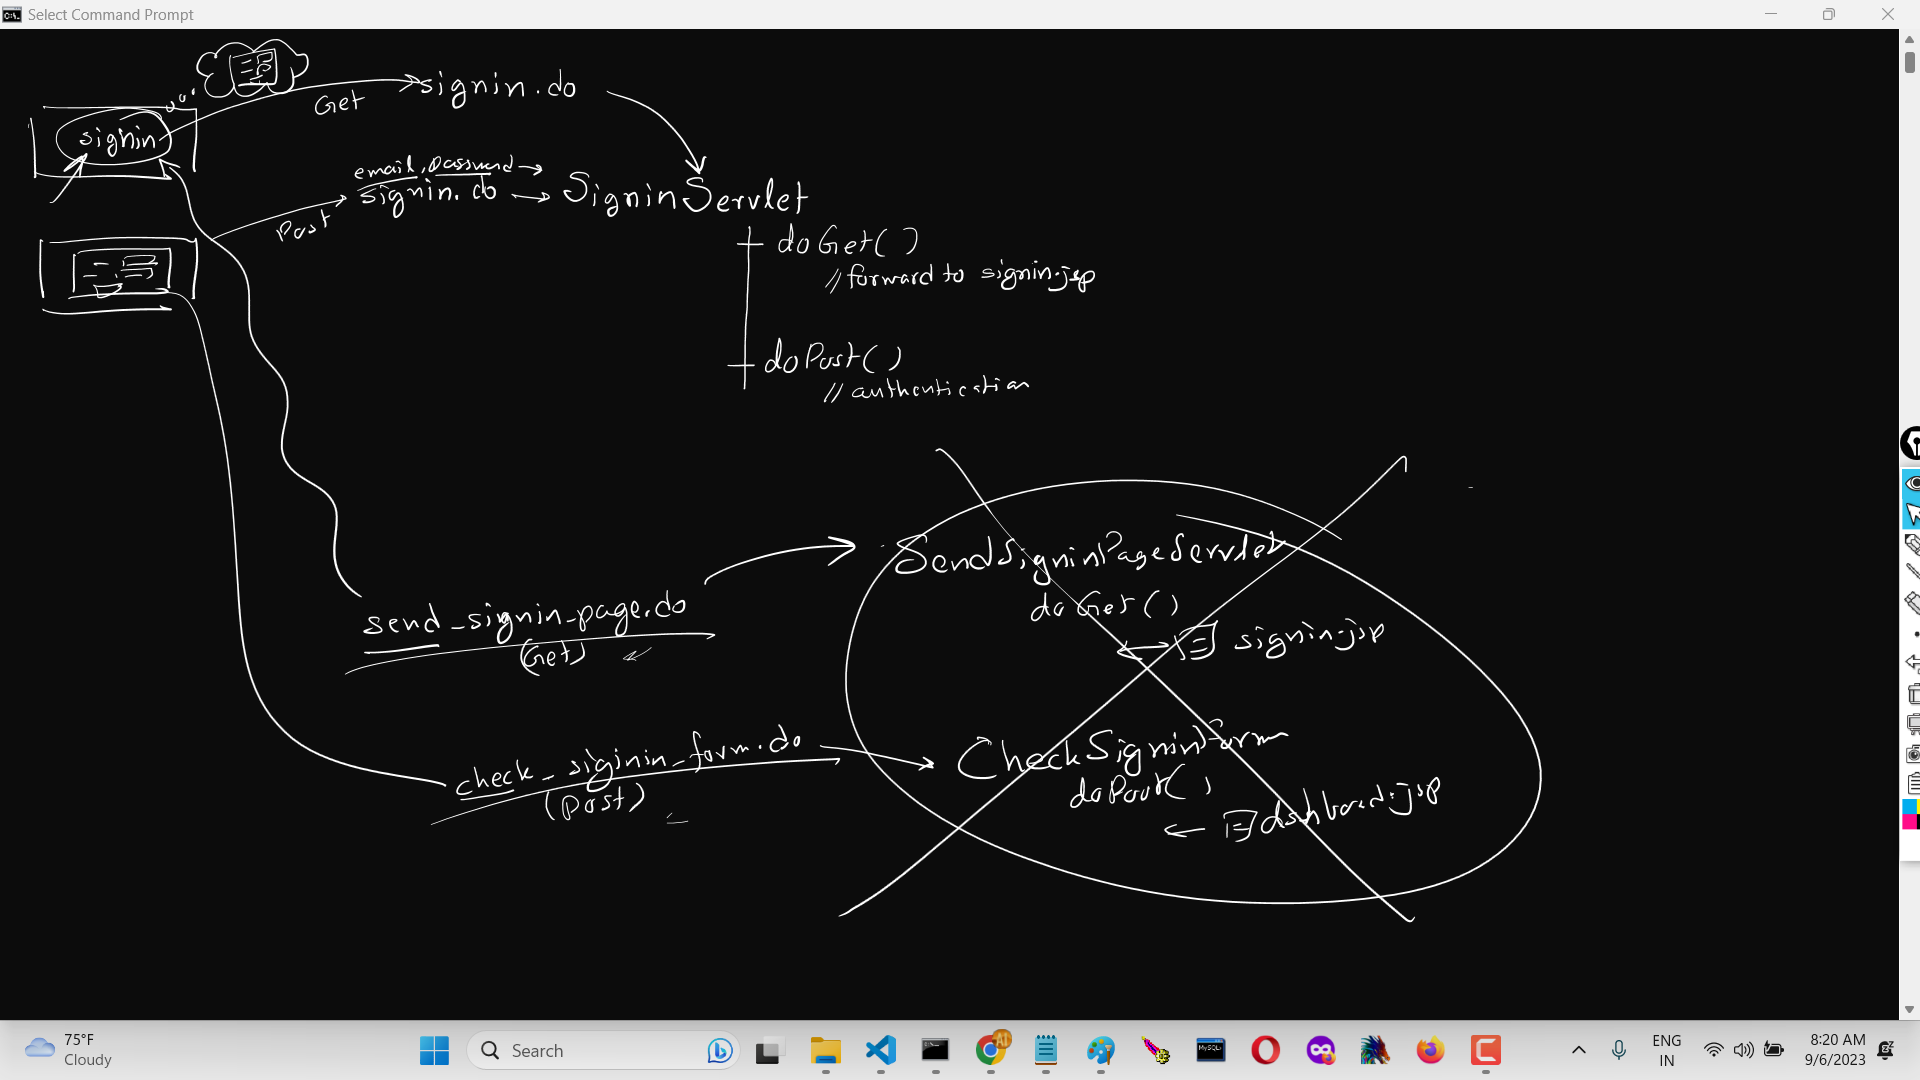 Select Command Prompt
signin.do
Get
signin
email, password
signin.do
SigninServlet
Post
doGet()
//forward to signin.jsp
doPost()
//authentication
SendSigninPageServlet
doGet()
send_signin_page.do
(Get)
signin.jsp
CheckSigninForm
check_siginin_form.do
doPost()
(post)
dashboard.jsp
75°F
Cloudy
Search
ENG
IN
8:20 AM
9/6/2023